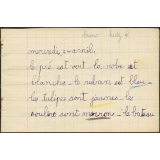 mercredi 2 avril.
le pré est vert - la robe est
blanche - le ruban est bleu -
les tulipes sont jaunes - les
souliers sont marrons - le bateau